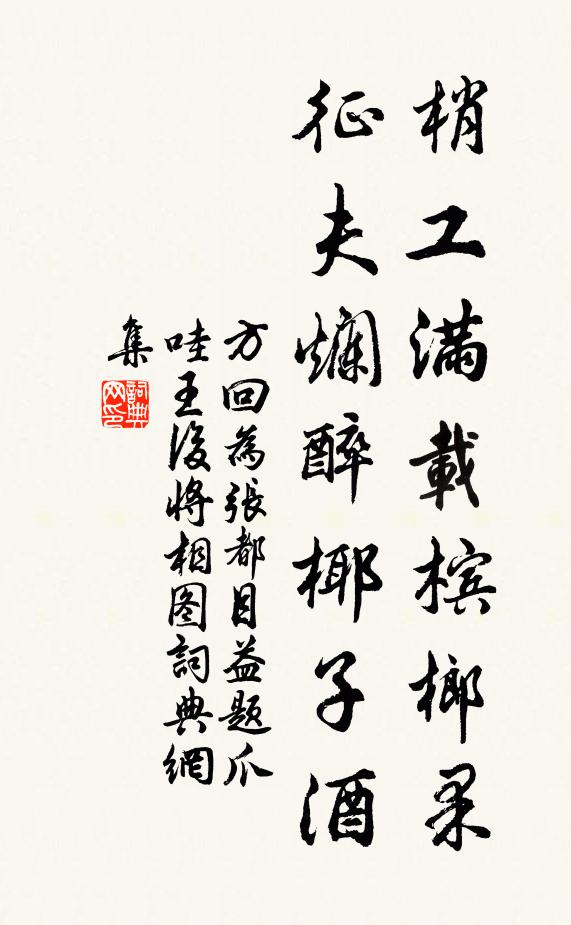 梢工满載槟榔果
征夫爛醉椰子酒
方回為張都目益題爪
哇王後将相图詞典網
集
詞典网印